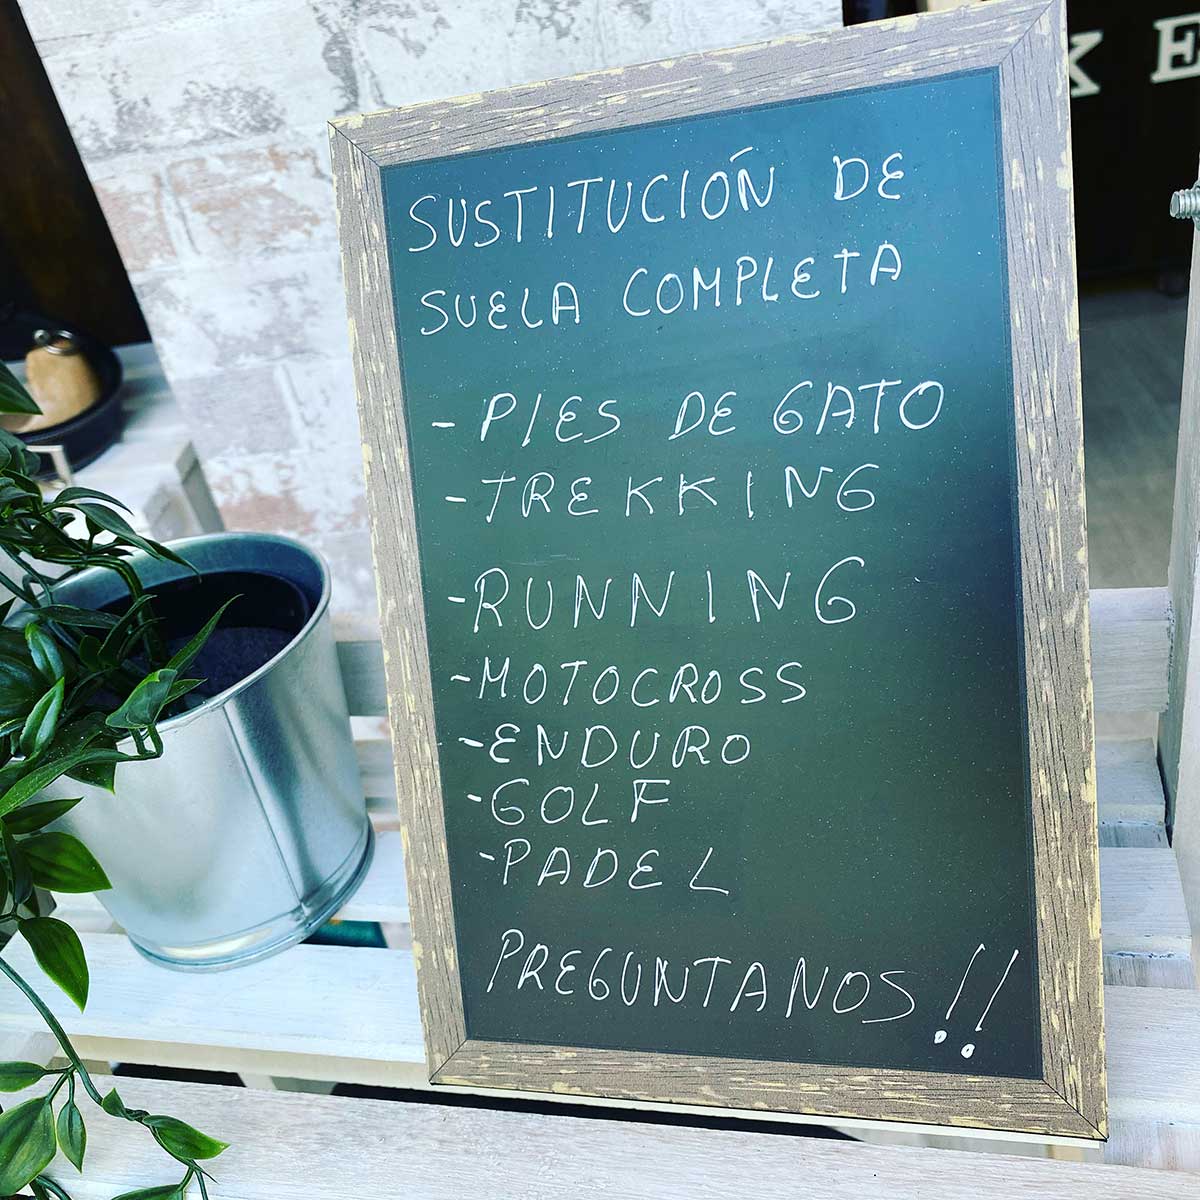 SUSTITUCIÓN DE
SUELA COMPLETA
- PIES DE GATO
- TREKKING
- RUNNING
- MOTOCROSS
- ENDURO
- GOLF
- PADEL
PREGUNTANOS!!